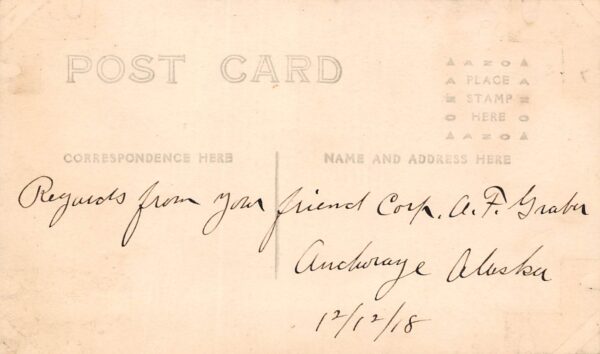 POST CARD
▲ A Z O ▲
▲ PLACE ▲
STAMP
HERE
▲ A Z O ▲
CORRESPONDENCE HERE
NAME AND ADDRESS HERE
Regards from your friend Corp. A. F. Graber
Anchorage Alaska
12/12/18